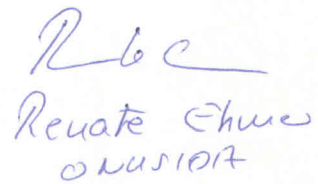 Renate Ehmer
ONUSIDA